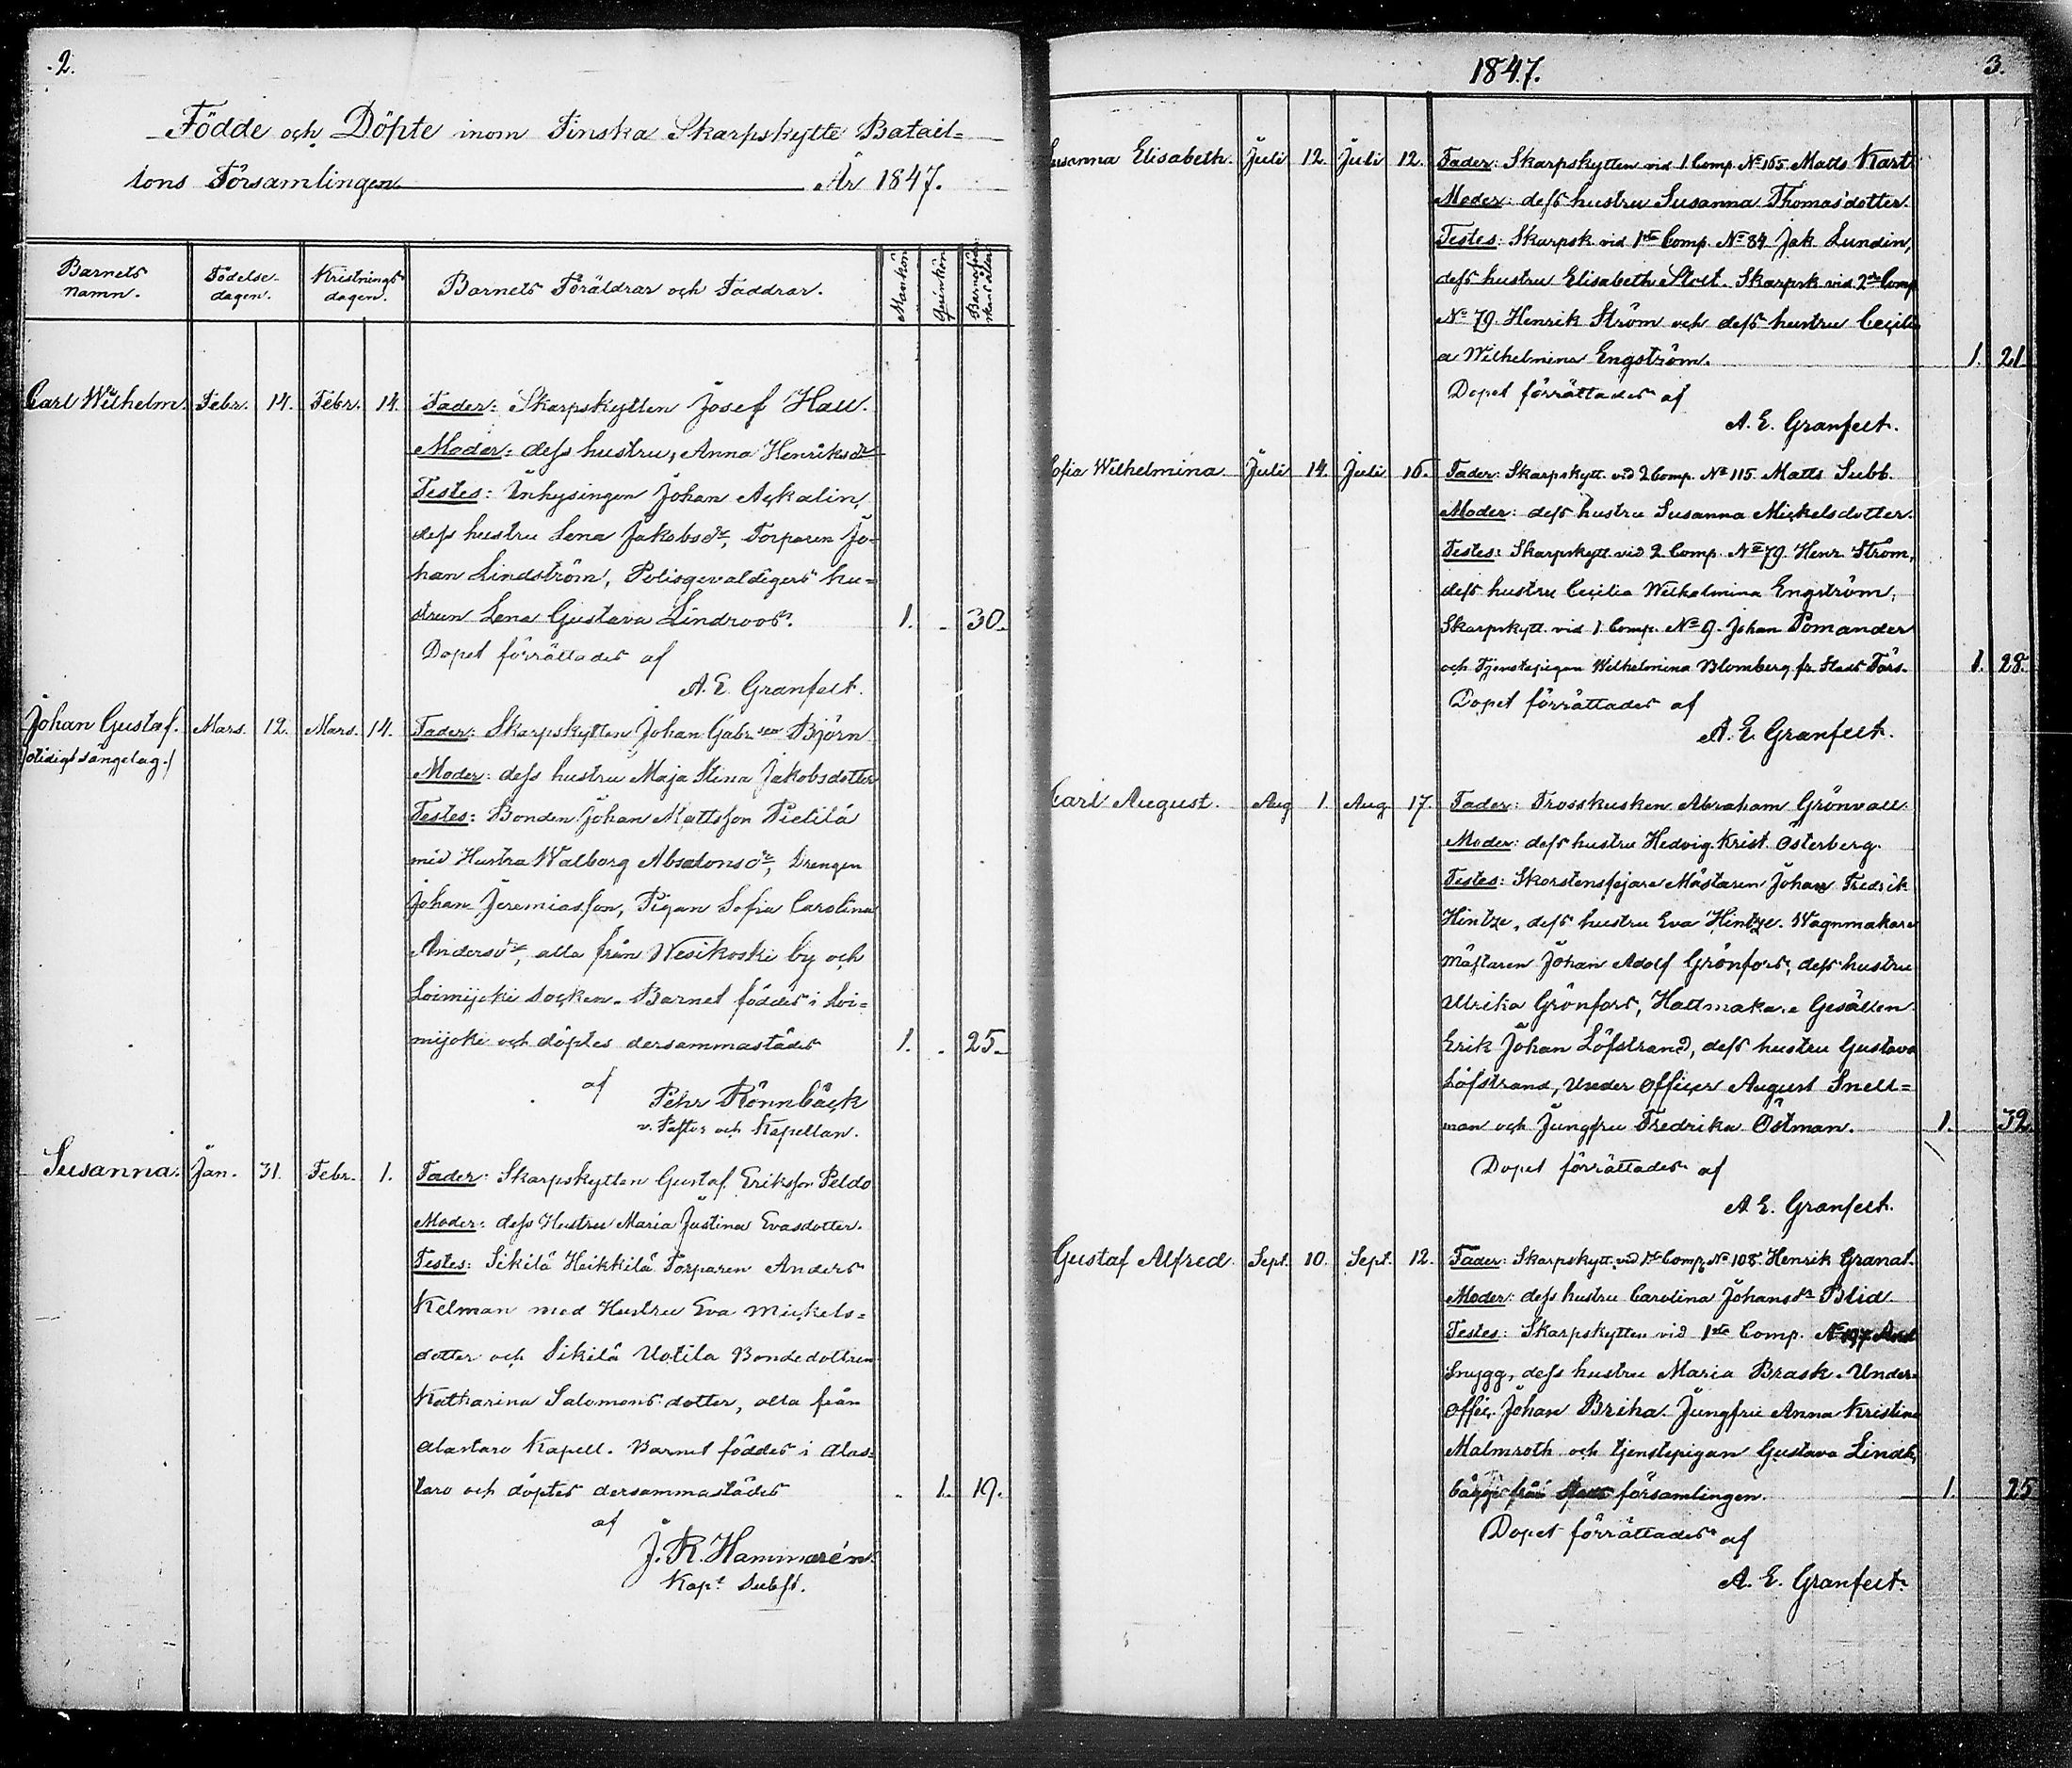 2.
Födde och Döpte inom Finska Skarpskytte Batail=
lons Församlingen År 1847.
Barnets namn.
Födelse-dagen.
Kristnings dagen.
Barnets Föräldrar och Faddrar.
Mankön
Qvinkön
Carl Wilhelm. Febr. 14. Febr. 14. Fader: Skarpskytten Josef Hall.
Moder: dess hustru, Anna Henriksdr
Testes: Inhysingen Johan Ackalin,
dess hustru Lena Jakobsdr, Torparen Jo-
han Lindström, Polisgevaldigers hu=
strun Lena Gustava Lindroos. 1. - 30.
Dopet förrättades af
A. E. Granfelt.
Johan Gustaf. Mars. 12. Mars. 14. Fader: Skarpskytten Johan Gabr.son Björn
/otidigt sängelag./
Moder: dess hustru Maja Stina Jakobsdotter
Testes: Bonden Johan Mattsson Pietilä
med Hustru Walborg Absalonsdr, Drengen
Johan Jeremiasson, Pigan Sofia Carolina
Andersdr, alla från Wesikoski by och
Loimijoki socken. Barnet föddes i Loi=
mijoki och döptes dersammastädes 1. - 25.
af
Pehr Rönnbäck
v. Pastor och Kapellan.
Susanna. Jan. 31. Febr. 1. Fader: Skarpskytten Gustaf Eriksson Peldo
Moder: dess Hustru Maria Justina Evasdotter.
Testes: Sikilä Heikkilä Torparen Anders
Kelman med Hustru Eva Mickels=
dotter och Sikilä Uotila Bondedottren
Katharina Salomons dotter, alla från
Alastaro Kapell. Barnet föddes i Alas=
taro och döptes dersammastädes - 1. 19.
af
J. R. Hammarén.
Kapt Subst.
1847. 3.
Susanna Elisabeth. Juli 12. Juli 12. Fader: Skarpskytten vid 1 Comp. No 165 Matts Kart
Moder: dess hustru Susanna Thomasdotter.
Testes: Skarpsk vid 1sta Comp. No 84 Jak Lundin,
dess hustru Elisabeth Stolt. Skarpsk vid 2dra Comp
No 79 Henrik Ström och dess hustru Cecili
a Wilhelmina Engström. 1. 21
Dopet förrättades af
A. E. Granfelt.
Sofia Wilhelmina Juli 14. Juli 16. Fader: Skarpskytt. vid 2 Comp. No 115. Matts Subb.
Moder: dess hustru Susanna Mickelsdotter.
Testes: Skarpskytt vid 2 Comp. No 79 Henr Ström,
dess hustru Cecilia Wilhelmina Engström,
Skarpskytt. vid 1 Comp. No 9. Johan Pomander
och Tjenstepigan Wilhelmina Blomberg fr. Stads Förs. 1. 28.
Dopet förrättades af
A. E. Granfelt.
Carl August. Aug 1. Aug 17. Fader: Trosskusken Abraham Grönvall
Moder: dess hustru Hedvig Krist. Österberg.
Testes: Skorstensfejare Mästaren Johan Fredrik
Hintze, dess hustru Eva Hintze. Wagnmakare
mästaren Johan Adolf Grönfors, dess hustru
Ulrika Grönfors, Hattmakare Gesällen
Erik Johan Löfstrand, dess hustru Gustava
Löfstrand, Under Officer August Snell=
man och Jungfru Fredrika Östman. 1. 32
Dopet förrättades af
A E. Granfelt.
Gustaf Alfred Sept. 10. Sept. 12. Fader: Skarpskytt. vid 1sta Comp. No 108. Henrik Granat.
Moder: dess hustru Carolina Johansdr Blid
Testes: Skarpskytten vid 1sta Comp. No 197
Snygg, dess hustru Maria Brask. Under-
offic. Johan Briha. Jungfru Anna Kristina
Malmroth och tjenstepigan Gustava Lind
från församlingen. 1. 25
Dopet förrättades af
A. E. Granfelt.